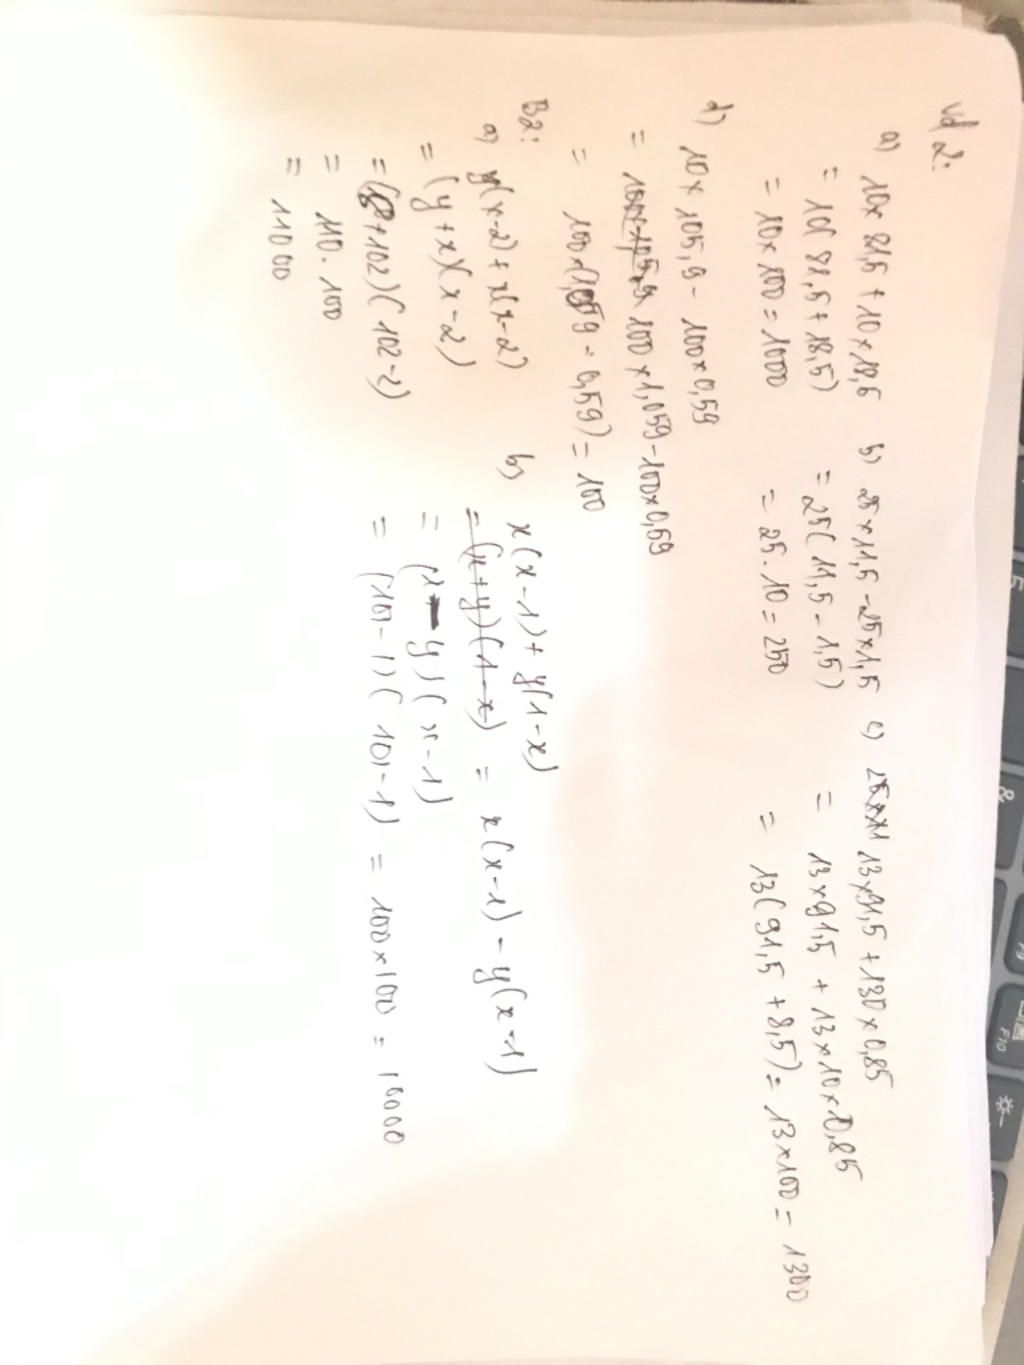 Vd 2:
a) 10 x 81,5 + 10 x 18,5
= 10( 81,5 + 18,5)
= 10 x 100 = 1000
b) 25 x 11,5 - 25 x 1,5
= 25( 11,5 - 1,5)
= 25 . 10 = 250
c) 13 x 91,5 + 130 x 0,85
= 13 x 91,5 + 13 x 10 x 0,85
= 13( 91,5 + 8,5) = 13 x 100 = 1300
d) 10 x 105,9 - 100 x 0,59
= 100 x 1,059 - 100 x 0,59
= 100 x (1,059 - 0,59) = 100
B2:
a) y(x-2) + x(x-2)
= (y + x)(x - 2)
= (8 + 102)( 102-2)
= 110 . 100
= 11000
b) x(x-1) + y(1-x)
= (x+y)(1-x) = x(x-1) - y(x-1)
= (x - y)(x - 1)
= (101 - 1)( 101 - 1) = 100 x 100 = 10000